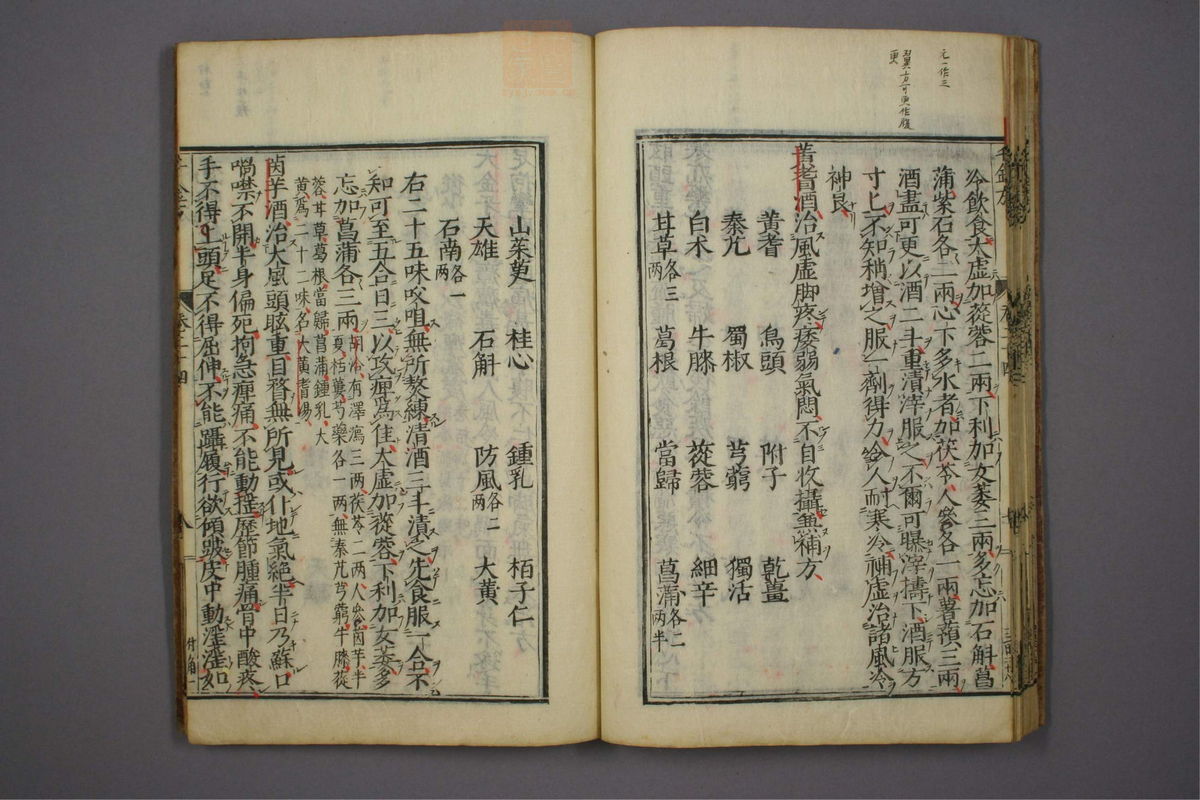 元一作三
翼方可更作腹
更
冷飲食大虛加蓯蓉二兩下利加女萎三兩多忘加石斛菖
蒲紫石各二兩心下多水者加茯苓人參各二兩薯蕷三兩
酒盡可更以酒二斗重漬滓服之不爾可曝滓擣下酒服方
寸匕不知稍增之服一劑得力令人耐寒冷補虛治諸風冷
神良
黃耆酒治風虛脚疼痿弱氣悶不自收攝兼補方
黃耆 烏頭 附子 乾薑
秦艽 蜀椒 芎藭 獨活
白朮 牛膝 蓯蓉 細辛
甘草各三兩 葛根 當歸 菖蒲各二兩半
山茱萸 桂心 鍾乳 栢子仁
天雄 石斛 防風各二兩 大黃
石南各一兩
右二十五味㕮咀無所熬練清酒三斗漬之先食服一合不
知可至五合日三以攻痹爲佳大虛加蓯蓉下利加女萎多
忘加菖蒲各三兩胡洽有澤瀉三兩茯苓二兩人參茵芋半夏栝蔞芍藥各一兩無秦艽芎藭牛膝蓯
蓉甘草葛根當歸菖蒲鍾乳大
黃爲二十二味名大黃耆湯
茵芋酒治大風頭眩重目瞀無所見或仆地氣絕半日乃蘇口
喎噤不開半身偏死拘急痹痛不能動搖歷節腫痛骨中酸疼
手不得上頭足不得屈伸不能躡履行欲傾跛皮中動淫淫如